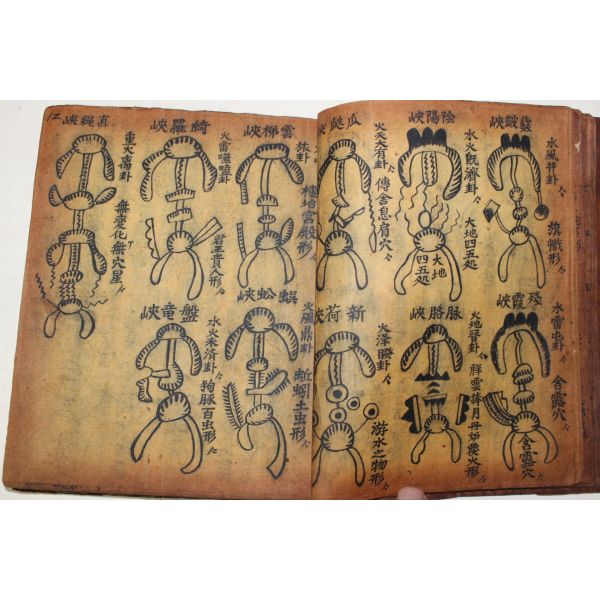 皷皷峽
水風井卦
旗幟形
陰陽峽
水火旣濟卦
大地四五処
大地
四五処
瓜瓞峽
火天大有卦
傳舍息肩穴
殘霞峽
水雷屯卦
含露穴
含露穴
脉胳峽
火地晉卦
祥雲捧月丹炉
火形
新荷峽
火澤睽卦
游水之物形
雲梯峽
旅卦
樓坮宮殿形
綺羅峽
火雷噬嗑卦
君王貴人形
直繩峽
重火离卦
無變化無穴星
蜈蚣峽
火風鼎卦
蚯蚓土虫形
盤竜峽
水火未済卦
狗豚百虫形
12